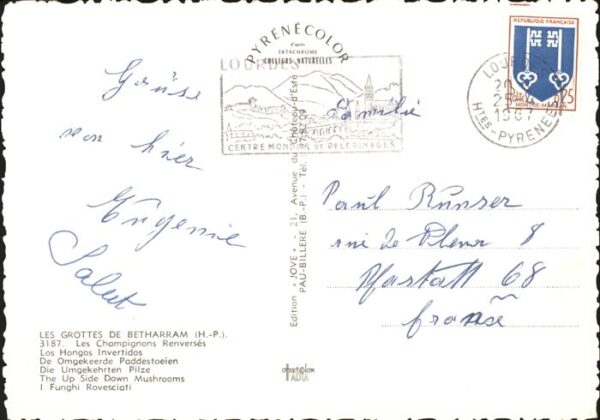 PYRÉNÉCOLOR
d'après
EKTACHROME
COULEURS NATURELLES
LOURDES
CENTRE MONDIAL DE PELERINAGES
LOURDES
1967
HTES-PYRENEES
REPUBLIQUE FRANÇAISE
MONT-DE-MARSAN
0,25
Grüsse
von hier
Eugenie
Salut.
Familie
Paul Runser
rue de Pleur 8
Pfastatt 68
france
Edition « JOVE » - 21, Avenue du Château-d'Este
PAU-BILLERE (B.-P.) - Tél. 27.8
LES GROTTES DE BETHARRAM (H.-P.).
3187. Les Champignons Renversés
Los Hongos Invertidos
De Omgekeerde Paddestoeien
Die Umgekehrten Pilze
The Up Side Down Mushrooms
I Funghi Rovesciati